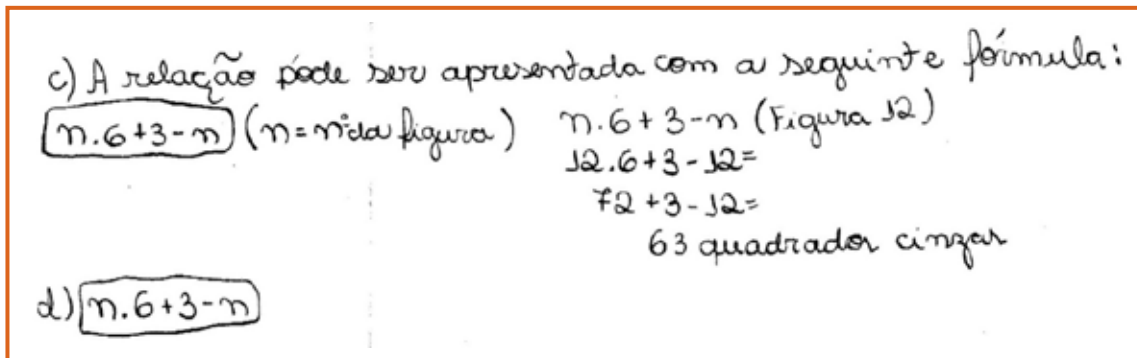 c) A relação pode ser apresentada com a seguinte fórmula:
n.6+3-n (n=nº da figura) n.6+3-n (Figura 12)
12.6+3-12=
72+3-12=
63 quadrados cinzas
d) n.6+3-n